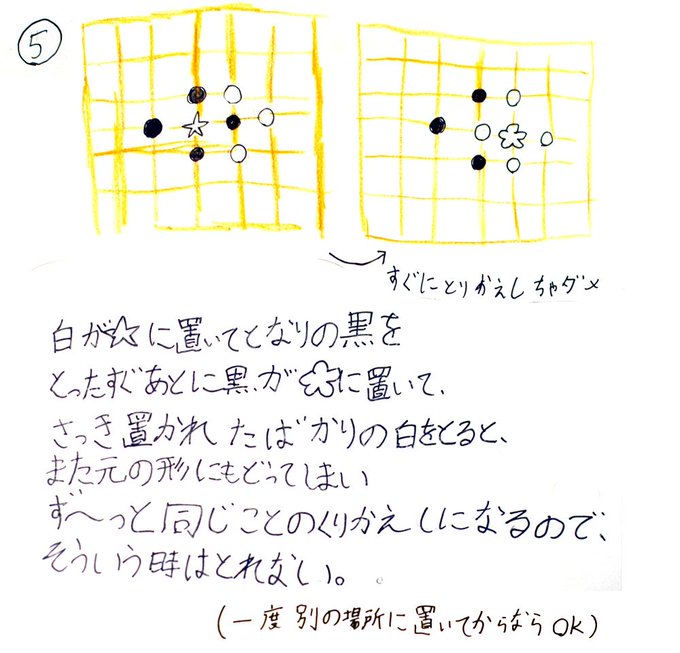 ⑤
すぐにとりかえしちゃダメ
白が☆に置いてとなりの黒を
とったすぐあとに黒が✿に置いて、
さっき置かれたばかりの白をとると、
また元の形にもどってしまい
ず〜っと同じことのくりかえしになるので、
そういう時はとれない。
(一度別の場所に置いてからならOK)